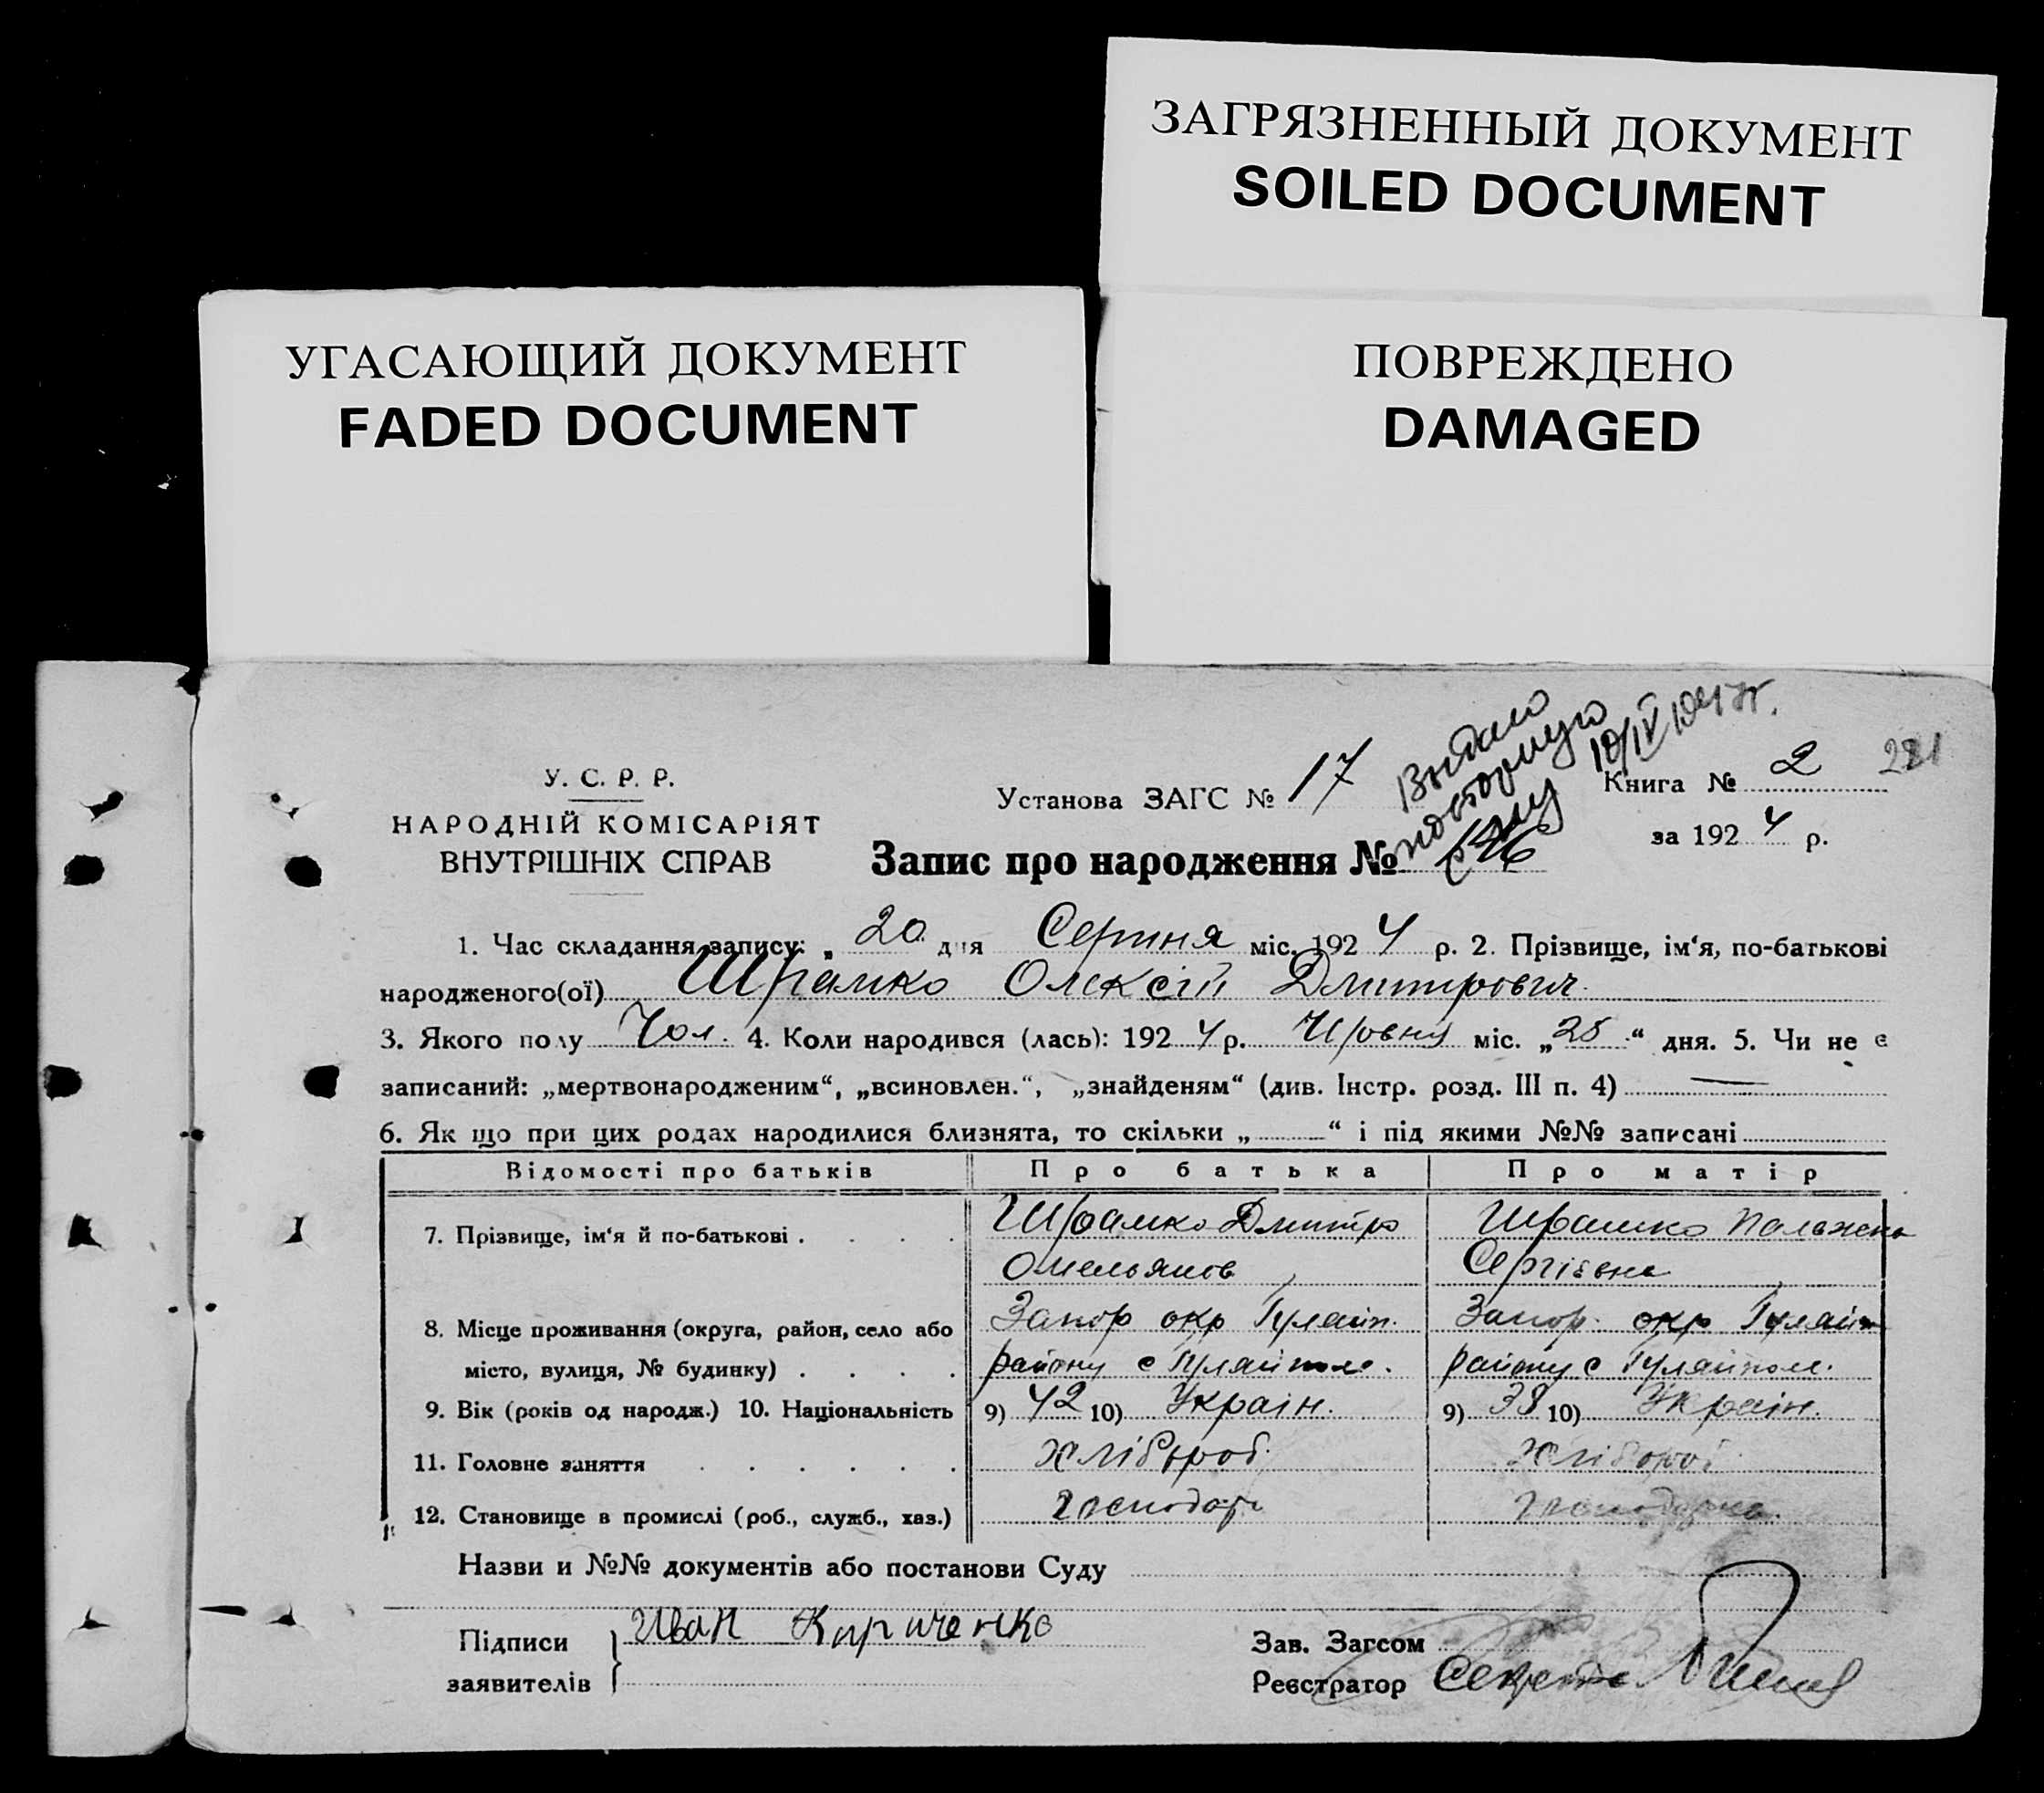 ЗАГРЯЗНЕННЫЙ ДОКУМЕНТ
SOILED DOCUMENT
УГАСАЮЩИЙ ДОКУМЕНТ
FADED DOCUMENT
ПОВРЕЖДЕНО
DAMAGED
У. С. Р. Р.
НАРОДНІЙ КОМІСАРІЯТ
ВНУТРІШНІХ СПРАВ
Установа ЗАГС № 17
Выдано
повторную
10/IV
Книга № 2
281
за 1924 р.
Запис про народження №
1. Час складання запису: „ 20 дня Серпня міс. 1924 р. 2. Прізвище, ім‘я, по-батькові
народженого(ої) Шрамко Олексій Дмитрович
3. Якого полу Чол. 4. Коли народився (лась): 1924 р. міс. „25“ дня. 5. Чи не є
записаний: „мертвонародженим“, „всиновлен.“, „знайденям“ (див. Інстр. розд. III п. 4) —
6. Як що при цих родах народилися близнята, то скільки „ “ і під якими №№ записані
Відомості про батьків Про батька Про матір
7. Прізвище, ім‘я й по-батькові . Шрамко Дмитро Шрамко
Омельянов Сергіевна
8. Місце проживання (округа, район, село або Запор окр Гуляйп. Запор. окр Гуляйп
місто, вулиця, № будинку) . району с Гуляйполе. району с Гуляйполе.
9. Вік (років од народж.) 10. Національність 9) 42 10) Україн. 9) 38 10) Україн.
11. Головне заняття хлібороб. хлібороб.
12. Становище в промислі (роб., служб., хаз.) Господарь Господарка.
Назви и №№ документів або постанови Суду
Підписи Иван Кириченко
заявителів
Зав. Загсом
Реєстратор